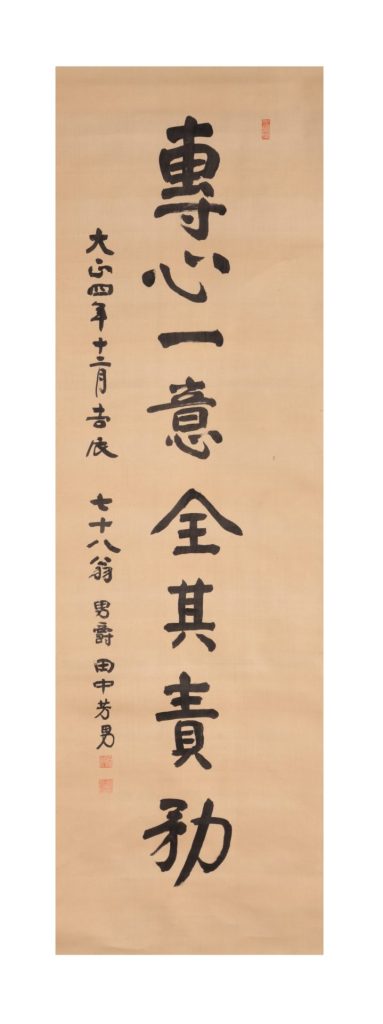 專心一意全其責務
大正四年十二月吉辰 七十八翁 男爵 田中芳男